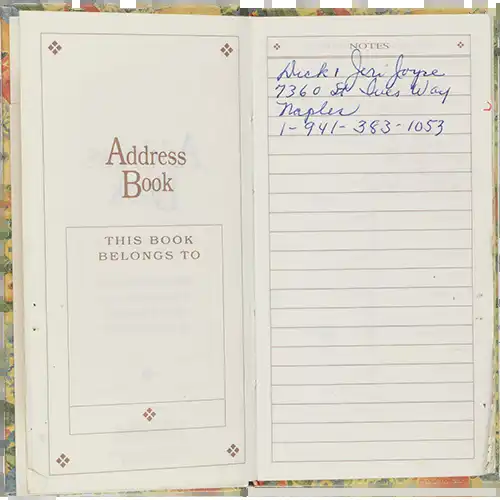 Address
Book
THIS BOOK
BELONGS TO
NOTES
Dick & Jeri Joyce
7360 St Ives Way
Naples
1-941-383-1053